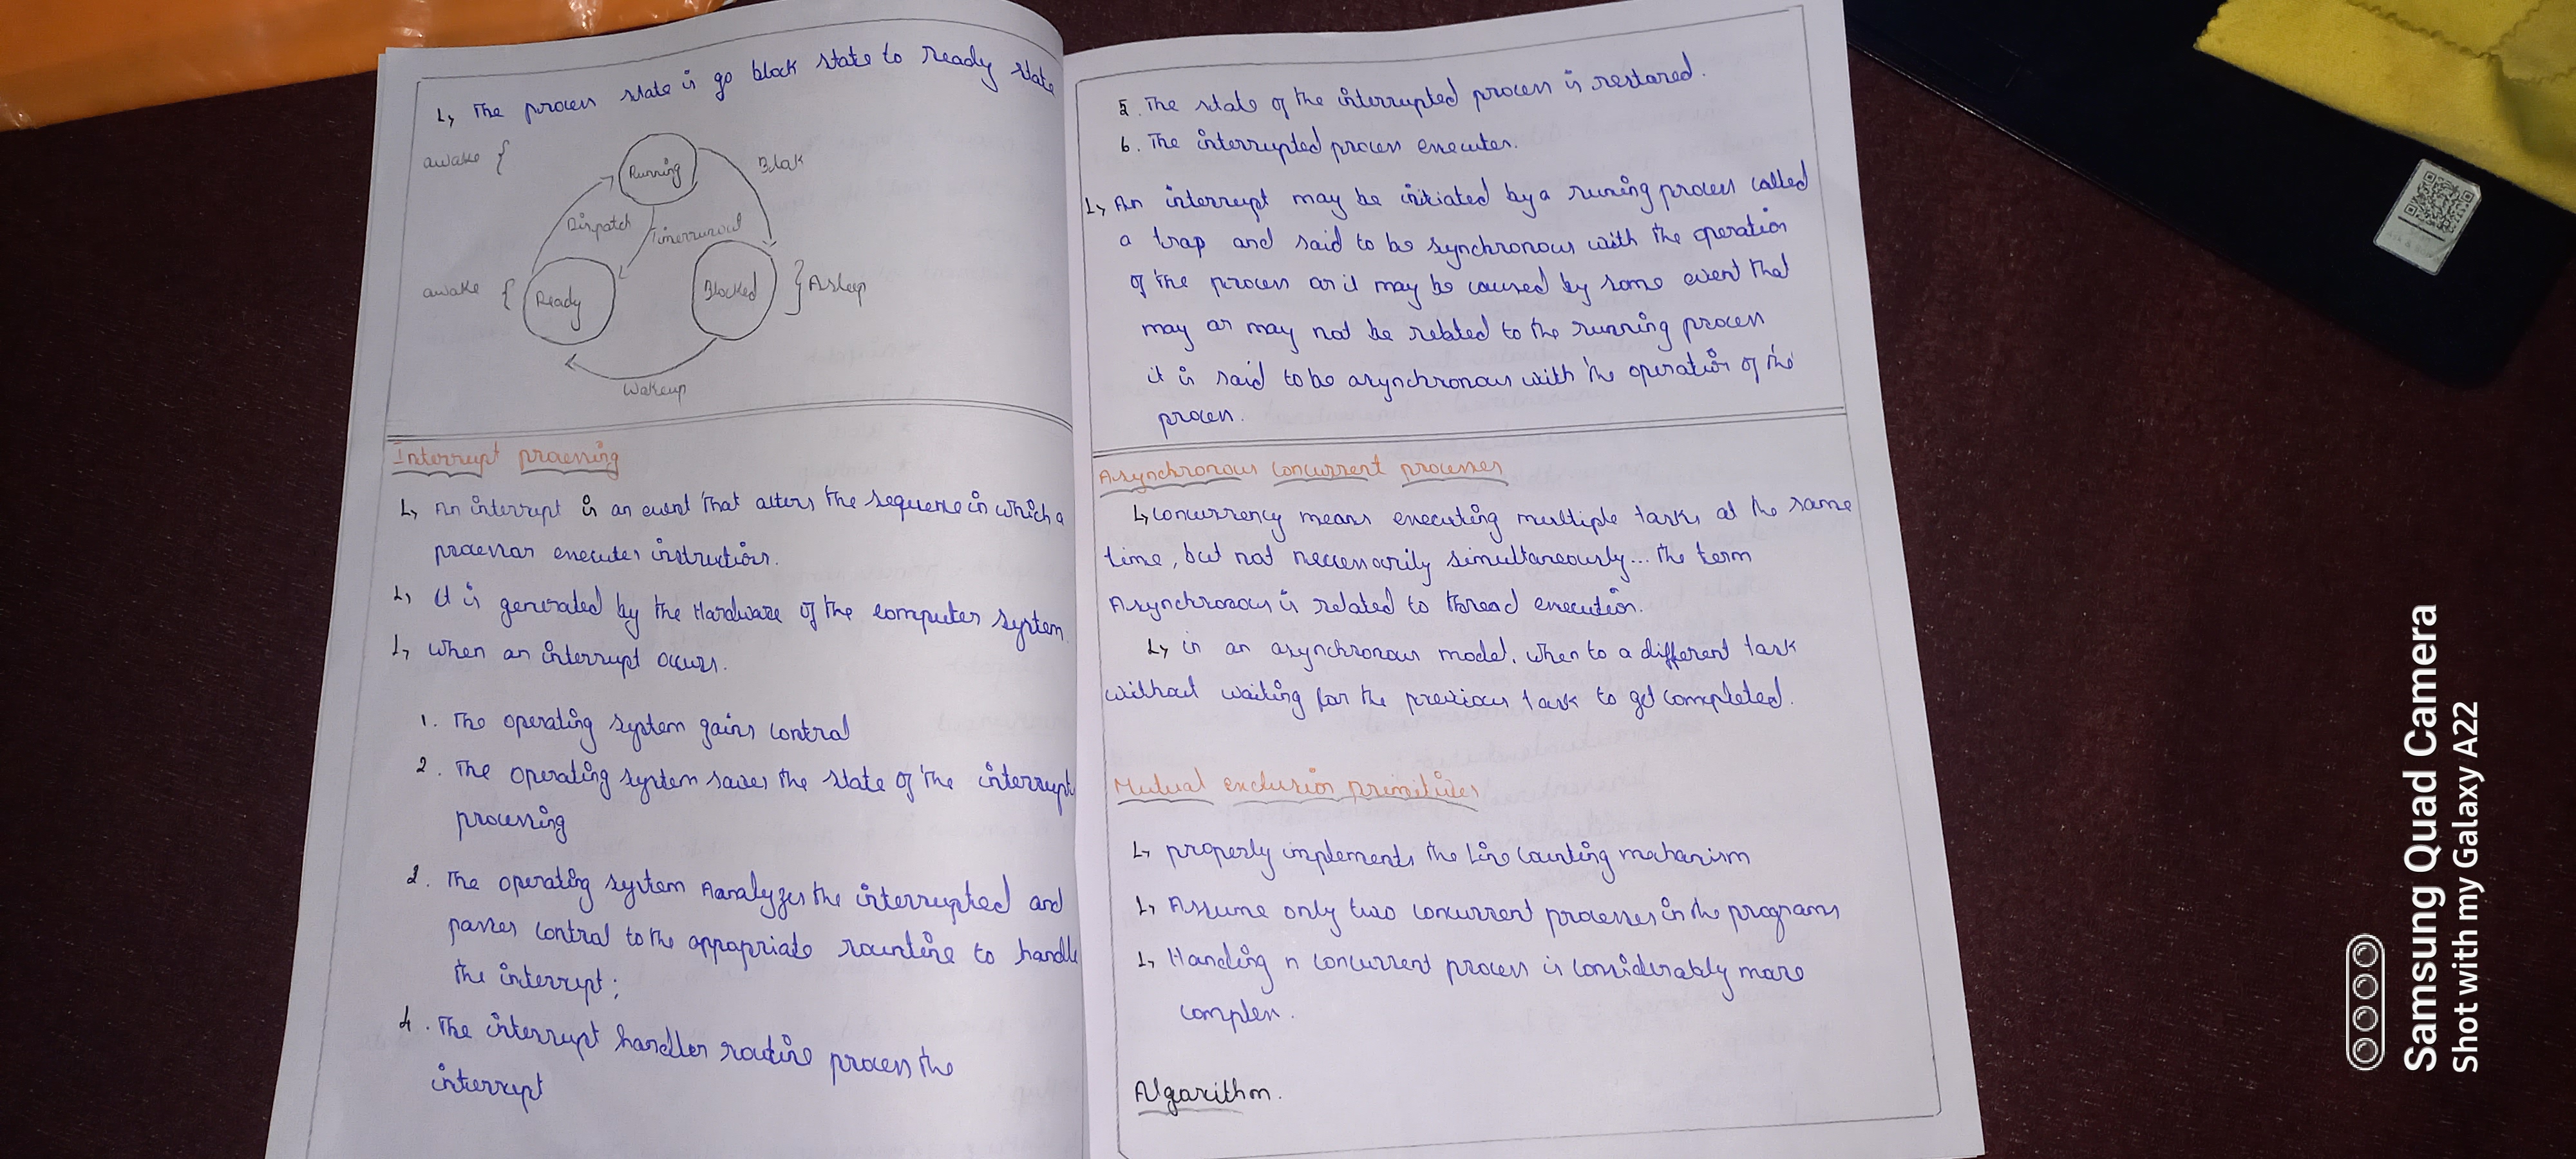 ↳ The process state is go block state to ready state
awake {
Running
Blok
Dispatch
Timerrunout
awake {
Ready
Blocked
} Asleep
Wakeup
Interrupt processing
↳ An interrupt is an event that alters the sequence in which a
processor executes instructions.
↳ it is generated by the Hardware of the computer system
↳ when an interrupt occurs.
1. The operating system gains control
2. The operating system saves the state of the interrupt
processing
3. The operating system Analyzes the interrupted and
passes control to the appopriate rountine to handle
the interrupt;
4. The interrupt handler routine process the
interrupt
5. The state of the interrupted process is restored.
6. The interrupted process executes.
↳ An interrupt may be initiated by a runing process called
a trap and said to be synchronous with the operation
of the process or it may be caused by some event that
may or may not be related to the running process
it is said to be asynchronous with the operation of the
process.
Asynchronous concurrent processes
↳ concurrency means executing multiple tasks at the same
time, but not neccessarily simultaneously... the term
Asynchronous is related to thread execution.
↳ in an asynchronous model, when to a different task
without waiting for the previous task to get completed.
Mutual exclusion primitives
↳ properly implements the line counting mechanism
↳ Assume only two concurrent processes in the programs
↳ Handing n concurrent process is considerably more
complex.
Algorithm.
Samsung Quad Camera
Shot with my Galaxy A22